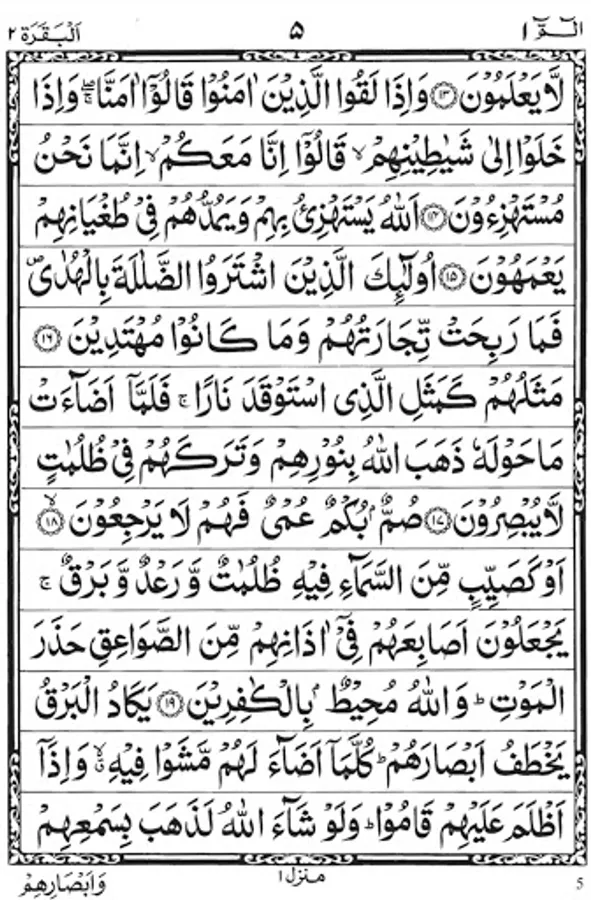 الٓمّٓ ١ ۵ اَلْبَقَرَة ٢
لَّا يَعْلَمُوْنَ ﴿۱۳﴾ وَاِذَا لَقُوا الَّذِيْنَ اٰمَنُوْا قَالُوْۤا اٰمَنَّا ۖۚ وَاِذَا
خَلَوْا اِلٰى شَيٰطِيْنِهِمْ ۙ قَالُوْۤا اِنَّا مَعَكُمْ ۙ اِنَّمَا نَحْنُ
مُسْتَهْزِءُوْنَ ﴿۱۴﴾ اَللّٰهُ يَسْتَهْزِئُ بِهِمْ وَيَمُدُّهُمْ فِيْ طُغْيَانِهِمْ
يَعْمَهُوْنَ ﴿۱۵﴾ اُولٰٓئِكَ الَّذِيْنَ اشْتَرَوُا الضَّلٰلَةَ بِالْهُدٰى ۪
فَمَا رَبِحَتْ تِّجَارَتُهُمْ وَمَا كَانُوْا مُهْتَدِيْنَ ﴿۱۶﴾
مَثَلُهُمْ كَمَثَلِ الَّذِى اسْتَوْقَدَ نَارًا ۚ فَلَمَّاۤ اَضَآءَتْ
مَا حَوْلَهٗ ذَهَبَ اللّٰهُ بِنُوْرِهِمْ وَتَرَكَهُمْ فِيْ ظُلُمٰتٍ
لَّا يُبْصِرُوْنَ ﴿۱۷﴾ صُمٌّۢ بُكْمٌ عُمْيٌ فَهُمْ لَا يَرْجِعُوْنَ ﴿۱۸﴾ ۙ
اَوْ كَصَيِّبٍ مِّنَ السَّمَآءِ فِيْهِ ظُلُمٰتٌ وَّرَعْدٌ وَّبَرْقٌ ۚ
يَجْعَلُوْنَ اَصَابِعَهُمْ فِيْۤ اٰذَانِهِمْ مِّنَ الصَّوَاعِقِ حَذَرَ
الْمَوْتِ ؕ وَاللّٰهُ مُحِيْطٌۢ بِالْكٰفِرِيْنَ ﴿۱۹﴾ يَكَادُ الْبَرْقُ
يَخْطَفُ اَبْصَارَهُمْ ؕ كُلَّمَاۤ اَضَآءَ لَهُمْ مَّشَوْا فِيْهِ ۙۗ وَاِذَاۤ
اَظْلَمَ عَلَيْهِمْ قَامُوْا ؕ وَلَوْ شَآءَ اللّٰهُ لَذَهَبَ بِسَمْعِهِمْ
وَاَبْصَارِهِمْ منزل ١ 5